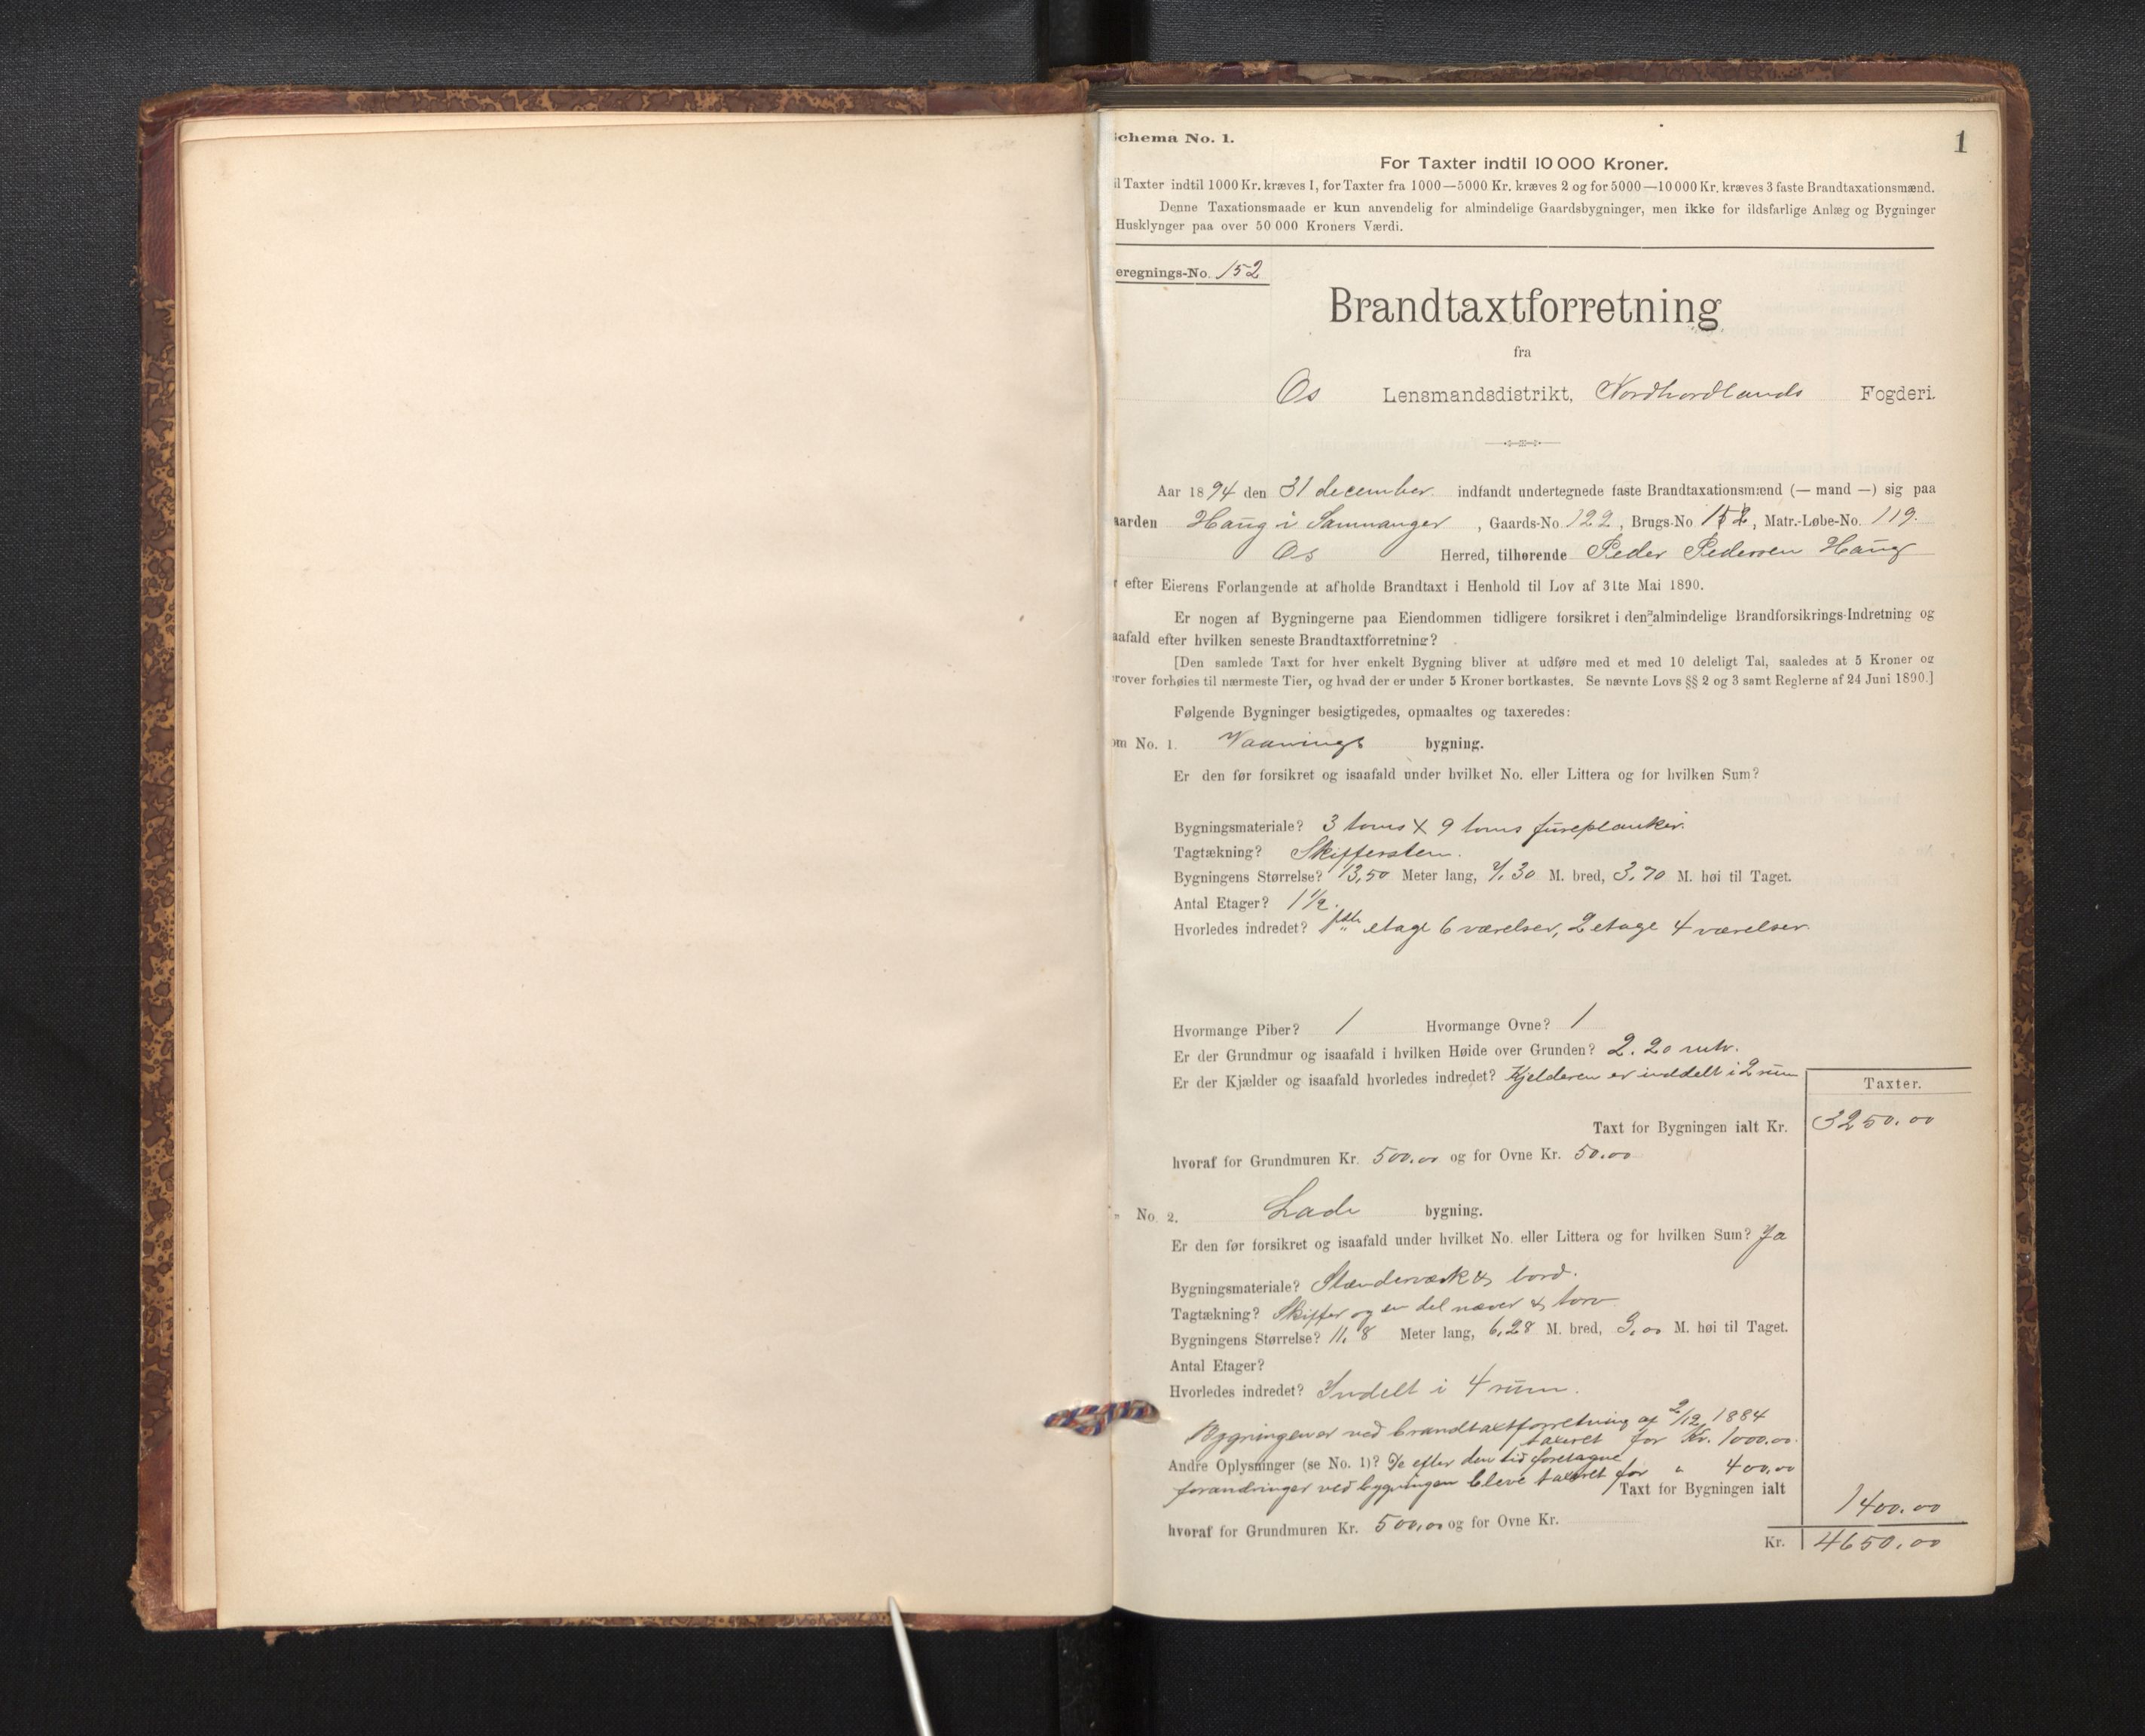 1
chema No. 1.
For Taxter indtil 10 000 Kroner.
il Taxter indtil 1000 Kr. kræves 1, for Taxter fra 1000—5000 Kr. kræves 2 og for 5000—10 000 Kr. kræves 3 faste Brandtaxationsmænd.
Denne Taxationsmaade er kun anvendelig for almindelige Gaardsbygninger, men ikke for ildsfarlige Anlæg og Bygninger
Husklynger paa over 50 000 Kroners Værdi.
eregnings-No. 152
Brandtaxtforretning
fra
Os Lensmandsdistrikt, Nordhordlands Fogderi.
Aar 1894 den 31 december. indfandt undertegnede faste Brandtaxationsmænd (— mand —) sig paa
aarden Haug i Samnanger, Gaards-No. 122, Brugs-No. 152, Matr.-Løbe-No. 119.
Os Herred, tilhørende Peder Pedersen Haug
r efter Eierens Forlangende at afholde Brandtaxt i Henhold til Lov af 31te Mai 1890.
Er nogen af Bygningerne paa Eiendommen tidligere forsikret i den almindelige Brandforsikrings-Indretning og
aafald efter hvilken seneste Brandtaxtforretning?
[Den samlede Taxt for hver enkelt Bygning bliver at udføre med et med 10 deleligt Tal, saaledes at 5 Kroner og
rover forhøies til nærmeste Tier, og hvad der er under 5 Kroner bortkastes. Se nævnte Lovs §§ 2 og 3 samt Reglerne af 24 Juni 1890.]
Følgende Bygninger besigtigedes, opmaaltes og taxeredes:
om No. 1. Vaanings bygning.
Er den før forsikret og isaafald under hvilket No. eller Littera og for hvilken Sum?
Bygningsmateriale? 3 toms X 9 toms fureplanker.
Tagtækning? Skiffersten.
Bygningens Størrelse? 13,50 Meter lang, 7.30 M. bred, 3.70 M. høi til Taget.
Antal Etager? 1 1/2.
Hvorledes indredet? 1ste etage 6 værelser, 2 etage 4 værelser.
Hvormange Piber? 1 Hvormange Ovne? 1
Er der Grundmur og isaafald i hvilken Høide over Grunden? 2.20 mtr.
Er der Kjælder og isaafald hvorledes indredet? Kjelderen er inddelt i 2 rum
Taxter.
Taxt for Bygningen ialt Kr. 3250.00
hvoraf for Grundmuren Kr. 500.00 og for Ovne Kr. 50.00
„ No. 2. Lade bygning.
Er den før forsikret og isaafald under hvilket No. eller Littera og for hvilken Sum? Ja
Bygningsmateriale? Stænderværk & bord.
Tagtækning? Skiffer og en del næver & torv
Bygningens Størrelse? 11.8 Meter lang, 6,28 M. bred, 3.00 M. høi til Taget.
Antal Etager?
Hvorledes indredet? Indelt i 4 rum.
Bygningen er ved brandtaxtforretning af 2/12 1884
taxeret for Kr. 1000.00.
Andre Oplysninger (se No. 1)? De efter den tid foretagne
forandringer ved bygningen bleve taxeret for " 400,00
Taxt for Bygningen ialt 1400.00
hvoraf for Grundmuren Kr. 500,00 og for Ovne Kr.
Kr. 4650.00